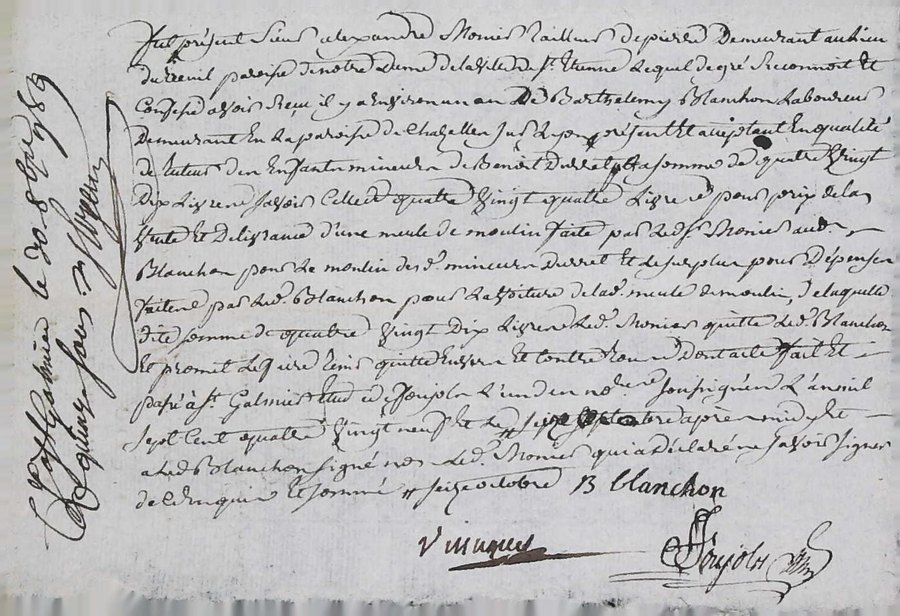 fut présent sieur alexandre Monier tailleur de pierre Demeurant au lieu
du treuil paroisse de notre Dame de la ville de St. Etienne Lequel de gré Reconnoit Et
Confesse avoir Reçu il y a Environ un an De Barthelemy Blanchon Laboureur
Demeurant En la paroisse de Chazelles Sur Lyon présent Et acceptant En qualité
de tuteur des Enfants mineurs de Benoit Durret La somme de quatre Vingt
Dix Livres savoir Celle de quatre Vingt quatre Livres pour prix de la
Vente Et Delivrance d'une meule de moulin faite par Led. Monier aud.
Blanchon pour Le moulin desd. mineurs Durret Et Le surplus pour Dépenses
faites par Led. Blanchon pour La voiture de lad. meule de moulin, de laquelle
dite somme de quatre Vingt Dix Livres Led. Monier quitte Led. Blanchon
Et promet Le faire tenir quitte Envers Et contre tous Dont acte fait Et
passé à St. Galmier Etude de Poujols L'un des no.res soussignés L'an mil
sept Cent quatre Vingt neuf Et Le après midy Et
a Led. Blanchon signé non Led. Monier qui a Déclaré ne savoir signer
de ce Enquis Et sommé // seize octobre B blanchon
Poujols
Controlé à St Galmier le 30 8bre 1789
Reçu quinze sous